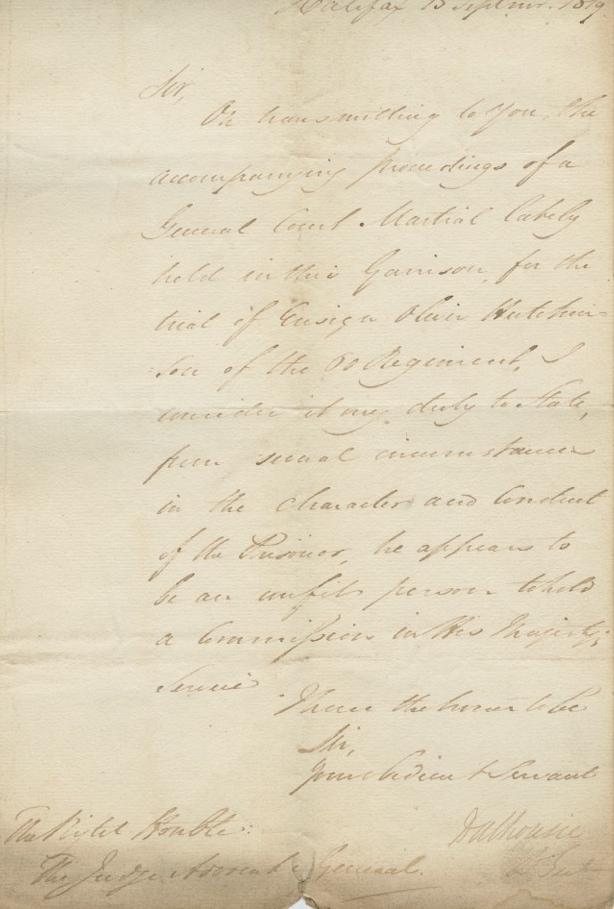 Halifax 13 Septemr. 1819
Sir,
On transmitting to you, the
accompanying proceedings of a
General Court Martial lately
held in this Garrison, for the
trial of Ensign Oliver Hutchin=
=son of the 60 Regiment, I
consider it my duty to State,
from several circumstances
in the Character and Conduct
of the Prisoner, he appears to
be an unfit person to hold
a Commission in His Majestys
Service
I have the honor to be
Sir,
Your Obedient Servant
Dalhousie
The Right Honble:
The Judge Advocate General.